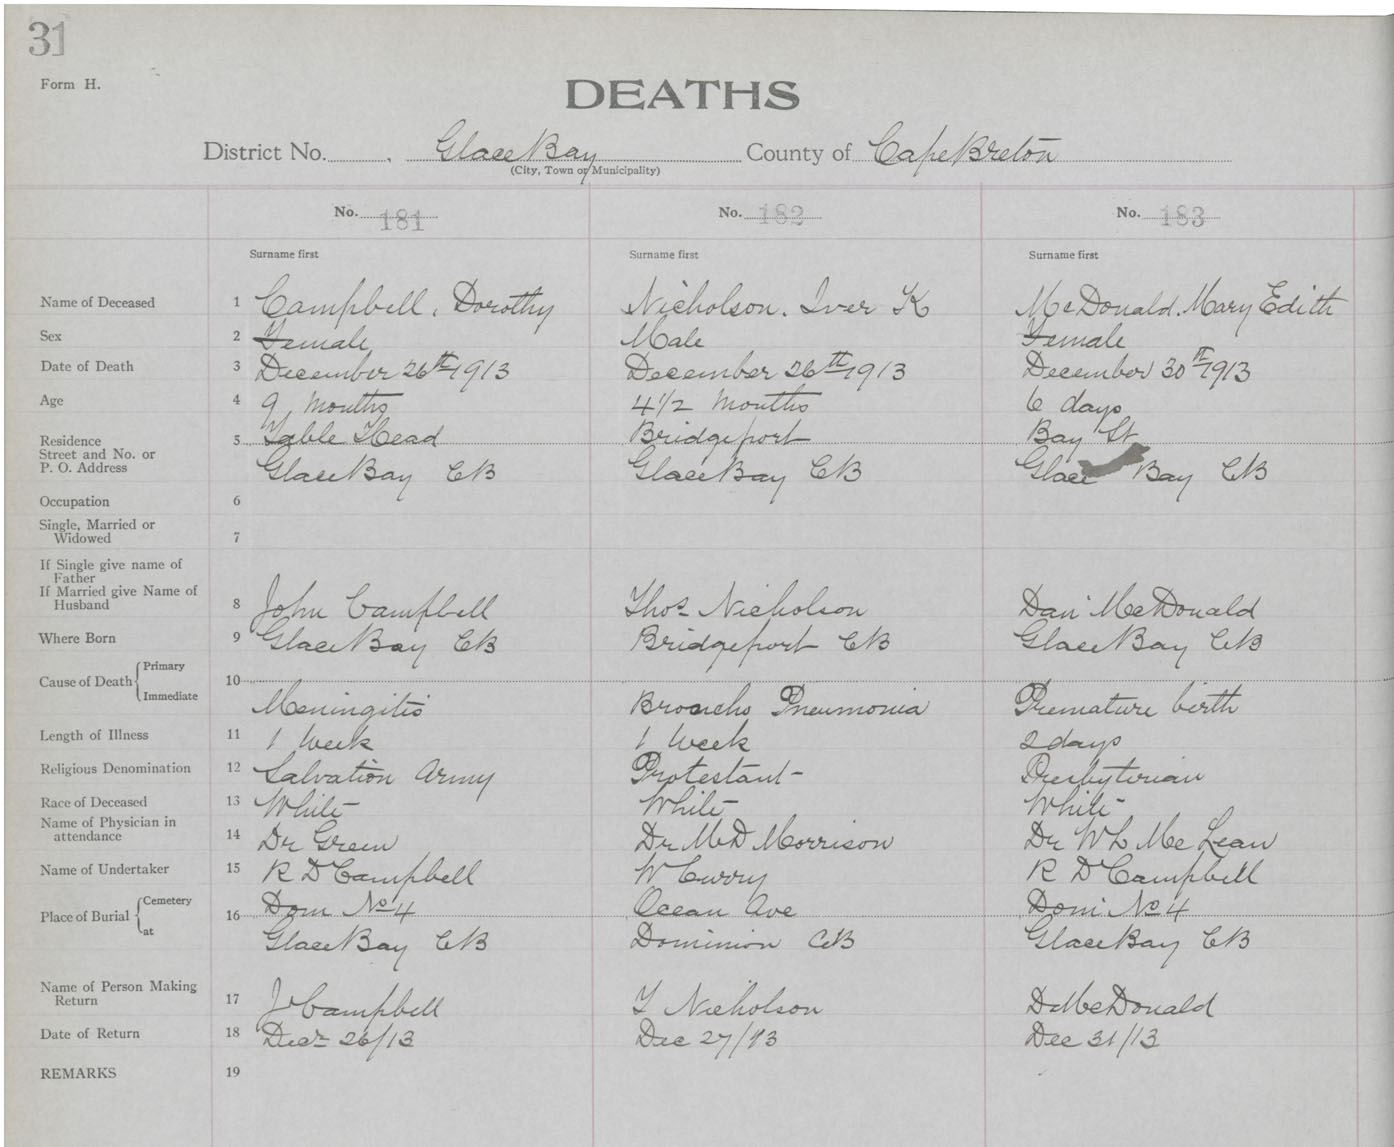 31
Form H.
DEATHS
District No. , Glace Bay County of Cape Breton
(City, Town or Municipality)
No. 181 No. 182 No. 183
Surname first Surname first Surname first
Name of Deceased 1 Campbell, Dorothy Nicholson. Iver K McDonald. Mary Edith
Sex 2 Female Male Female
Date of Death 3 December 26th 1913 December 26th 1913 December 30th 1913
Age 4 9 months 4 1/2 months 6 days
Residence 5 Table Head Bridgeport Bay St
Street and No. or
P. O. Address Glace Bay CB Glace Bay CB Glace Bay CB
Occupation 6
Single, Married or
Widowed 7
If Single give name of
Father
If Married give Name of
Husband 8 John Campbell Thos Nicholson Dan McDonald
Where Born 9 Glace Bay CB Bridgeport CB Glace Bay CB
Cause of Death { Primary 10
Immediate Meningitis Broncho Pneumonia Premature birth
Length of Illness 11 1 Week 1 Week 2 days
Religious Denomination 12 Salvation Army Protestant Presbyterian
Race of Deceased 13 White White White
Name of Physician in
attendance 14 Dr Green Dr M D Morrison Dr W L McLean
Name of Undertaker 15 R D Campbell W Curry R D Campbell
Place of Burial { Cemetery 16 Dom No 4 Ocean Ave Dom No 4
at Glace Bay CB Dominion CB Glace Bay CB
Name of Person Making
Return 17 J Campbell T Nicholson D McDonald
Date of Return 18 Decr 26/13 Dec 27/13 Dec 31/13
REMARKS 19